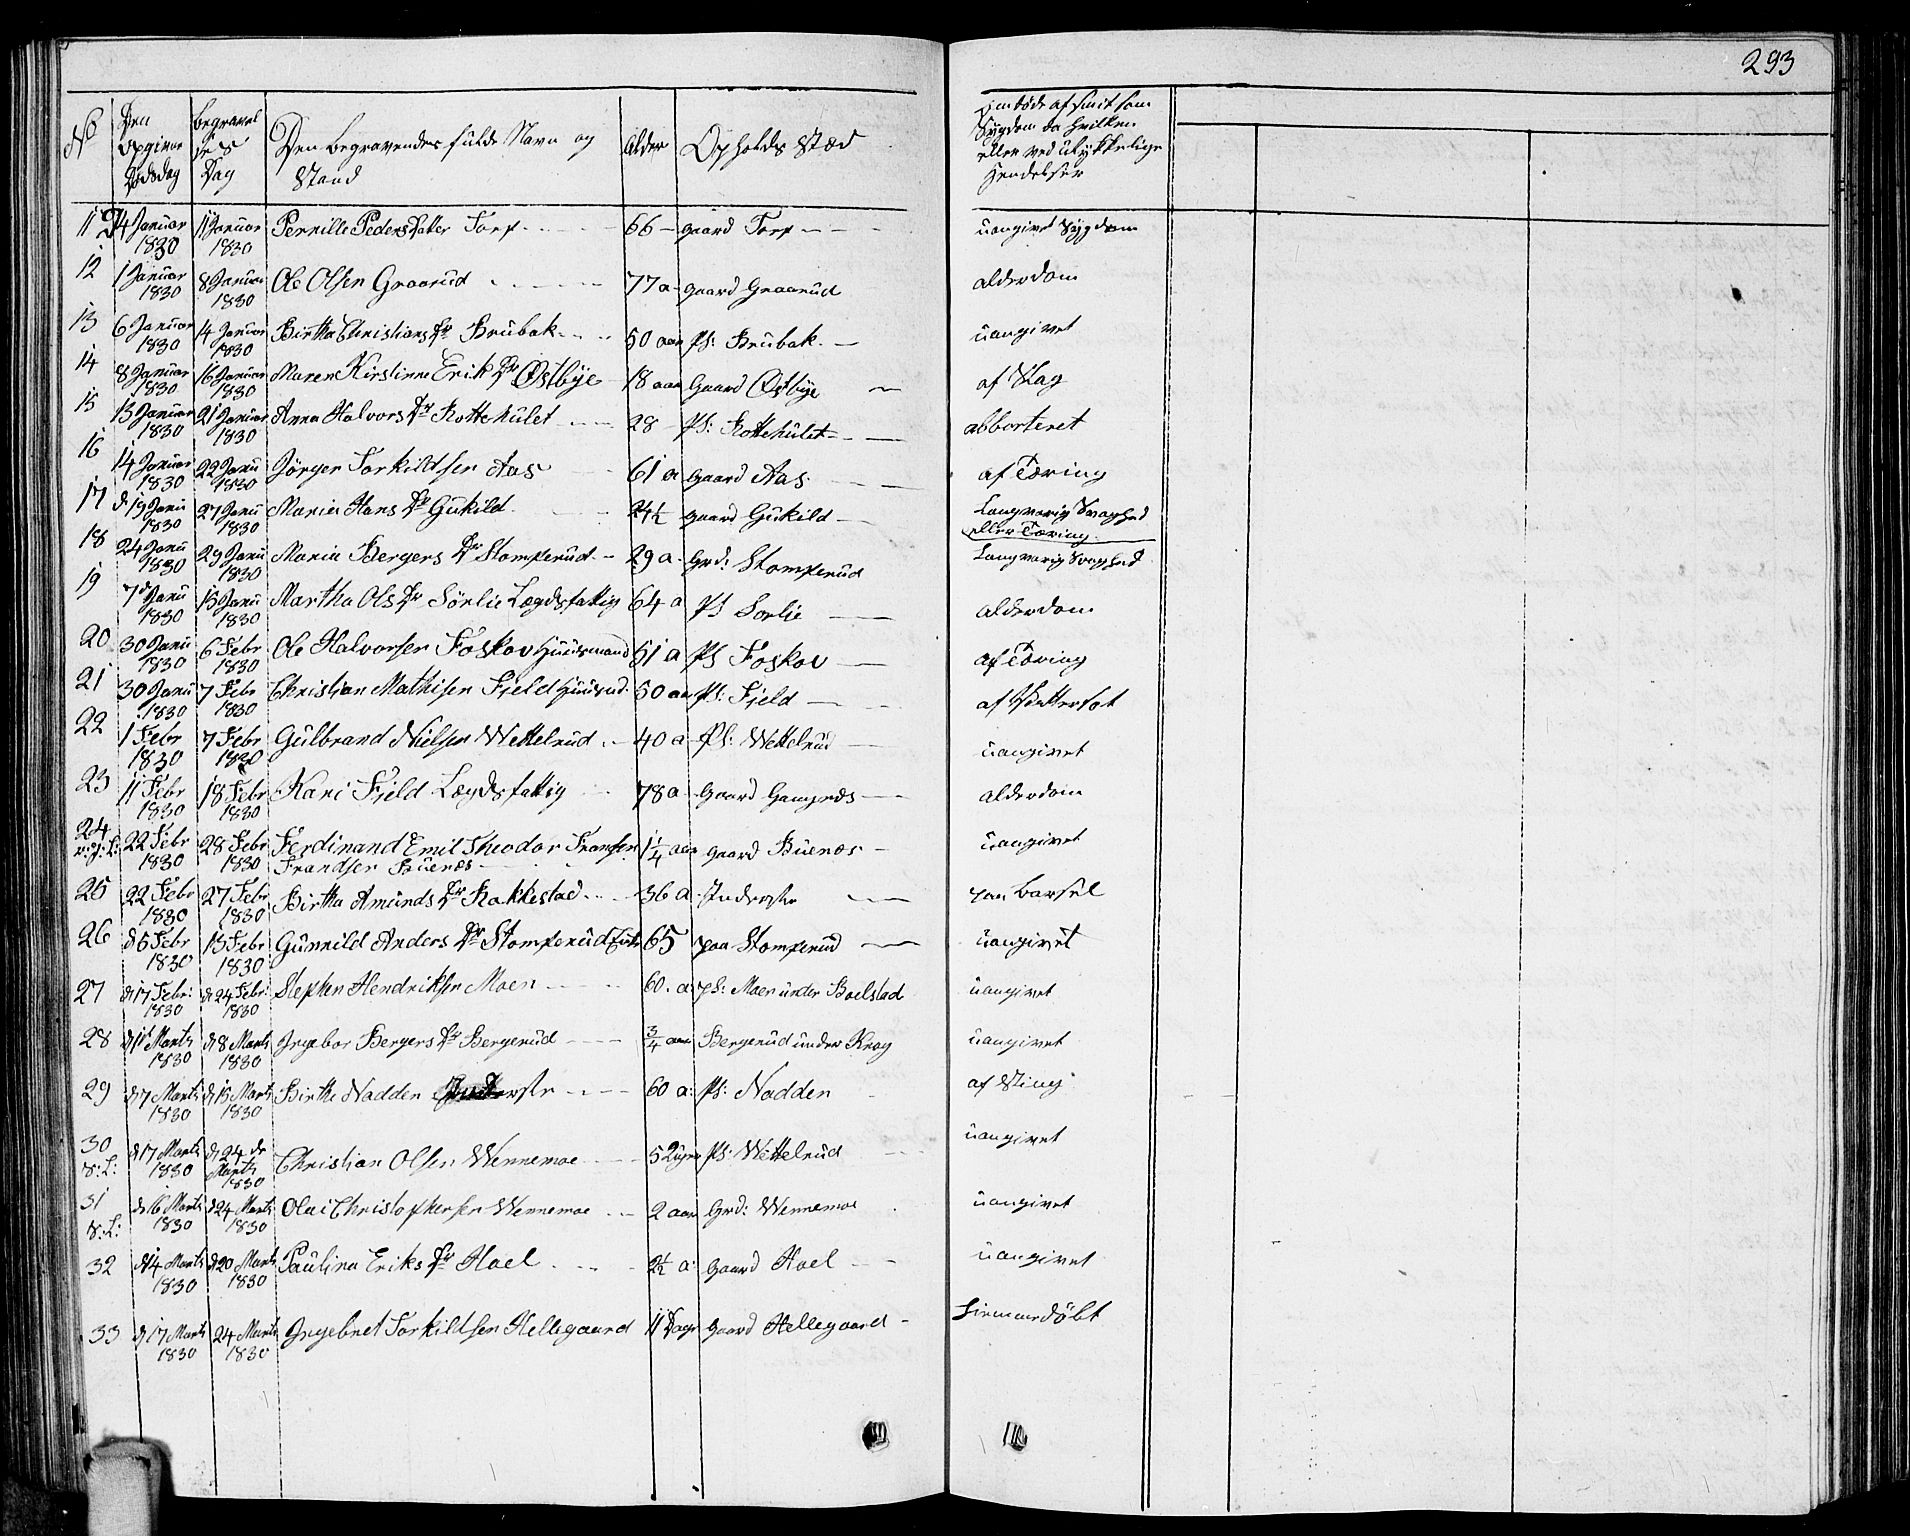 293
No Den opgivne Dødsdag Begravelses Dag Den Begravendes fulde Navn og Stand Alder Opholds Stæd
Sygdom da hvilken
eller ved Ulykkelige
Hendelser
11 4 Januar 1830 11 Januar 1830 Pernille Peders Datter Torp 66 gaard Torp uangivet Sygdom
12 1 Januar 1830 8 Januar 1830 Ole Olsen Graarud 77 a gaard Graarud alderdom
13 6 Januar 1830 14 Januar 1830 Birthe Christians Dr Brubak 50 aar Pl: Brubak uangivet
14 8 Januar 1830 16 Januar 1830 Maren Kirstinne Erik Dr Østbye 18 aar Gaard Østbye af Slag
15 13 Januar 1830 21 Januar 1830 Anna Halvors Dr Rottehulet 28 Pl: Rottehulet abborteret
16 14 Januar 1830 22 Janu 1830 Jörgen Torkildsen Aas 61 a gaard Aas af Tæring
17 d 19 Janu 1830 27 Janu 1830 Maria Hans Dr Gukild 24½ gaard Gukild Langvarig Svaghed eller Tæring
18 24 Janu 1830 29 Janu 1830 Maria Bergers Dr Stomperud 29 a Grd: Stomperud Langvarig Svaghed
19 7d Janu 1830 15 Janu 1830 Martha Ols Dr Sörlie Lægdsfattig 64 a Pl Sorlie alderdom
20 30 Janu 1830 6 Febr 1830 Ole Halvorsen Foskov Huusmand 61 a Pl Foskov af Tæring
21 30 Janu 1830 7 Febr 1830 Christian Mathisen Field Huusmd. 50 aar Pl: Fjeld af
22 1 Febr 1830 7 Febr 1830 Gulbrand Nielsen Wettelrud 40 a Pl: Wettelrud uangivet
23 11 Febr 1830 18 Febr 1830 Kari Fjeld Lægdsfattig 78 a Gaard Gangnæs alderdom
24 v:g:L: 22 Febr 1830 28 Febr 1830 Ferdinand Emil Theodor Fransen Frandsen Buenæs 1¼ aar gaard Buenæs uangivet
25 22 Febr 1830 27 Febr 1830 Birtha Amunds Dr Rakkestad 36 a Inderste paa Barsel
26 d 6 Febr 1830 13 Febr 1830 Gunnild Anders Dr Stomperud Enke 65 paa Stomperud uangivet
27 d 17 Febr: 1830 d 24 Febr: 1830 Stephen Hendriksen Moen 60 a Pl: Moen under Boelstad uangivet
28 d 1st Marts 1830 d 8 Marts 1830 Ingebor Bergers Dr Bergerud ¾ aar Bergerud under Krog uangivet
29 d 7 Marts 1830 d 15 Marts 1830 Birthe Nadden Inderste 60 a: Pl: Nadden af Sting
30 v:L: d 17 Marts 1830 d 24 de Marts 1830 Christian Olsen Wennemoe 5 Uger Pl: Wettelrud uangivet
31 v:L: d 16 Marts 1830 d 24 Marts 1830 Olai Christophersen Wennemoe 2 aar Grd: Wennemoe uangivet
32 d 14 Marts 1830 d 20 Marts 1830 Paulina Eriks Dr Hoel 2½ a: gaard Hoel uangivet
33 d 17 Marts 1830 24 Marts 1830 Ingebret Torkildsen Hellegaard 11 Dage gaard Hellegaard hiemmedöbt